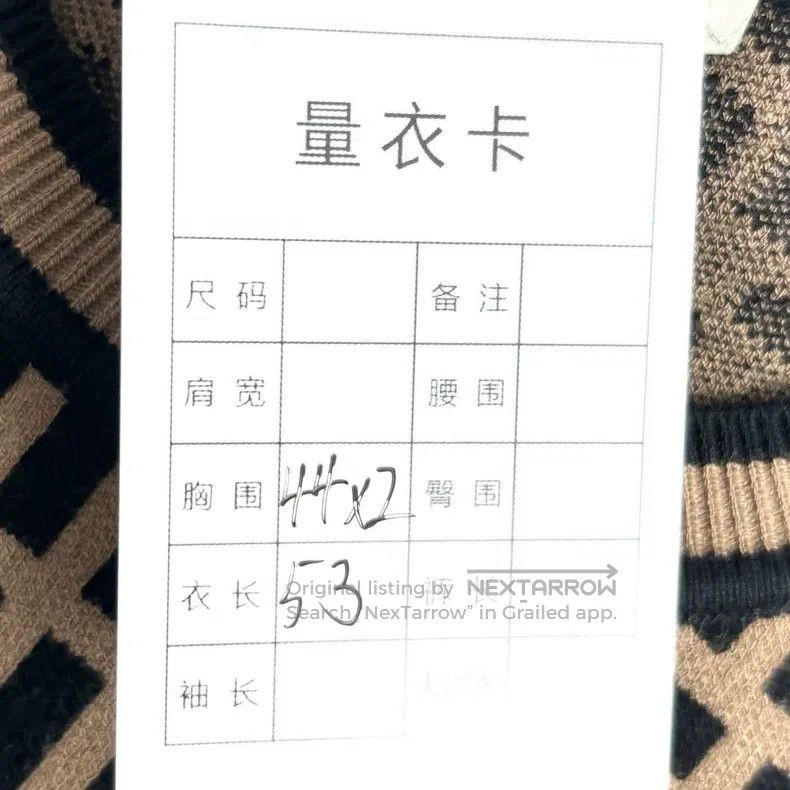 量衣卡
尺码 备注
肩宽 腰围
胸围 44x2 臀围
衣长 53 裤长
袖长
Original listing by NEXTARROW
Search "NexTarrow" in Grailed app.